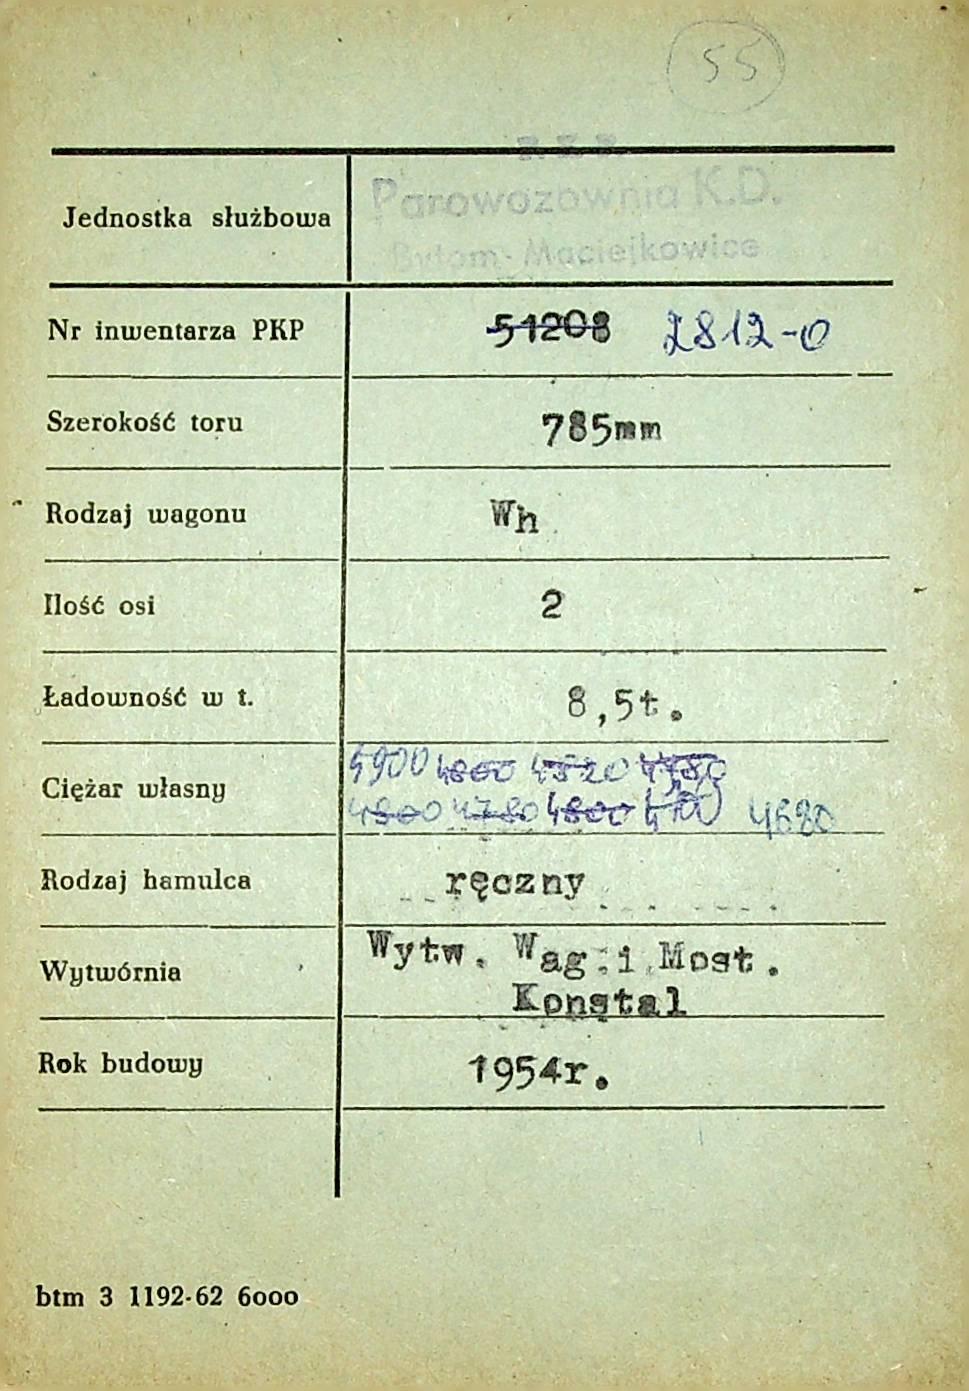 55
P. K. P.
Parowozownia K.D.
Jednostka służbowa
Bytom-Maciejkowice
Nr inwentarza PKP 51208 2812-0
Szerokość toru 785mm
Rodzaj wagonu Wh
Ilość osi 2
Ładowność w t. 8,5t.
4900 4860 4820
Ciężar własny
4800 4780 4800 4680
Rodzaj hamulca ręczny
Wytw. Wag. i Most.
Wytwórnia
Konstal
Rok budowy 1954r.
btm 3 1192-62 6000